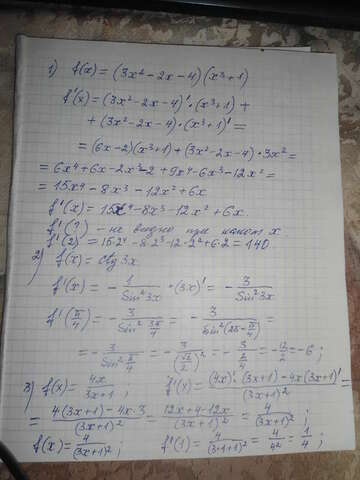 1) f(x) = (3x² - 2x - 4)(x³ + 1)
f'(x) = (3x² - 2x - 4)' · (x³ + 1) +
+ (3x² - 2x - 4) · (x³ + 1)' =
= (6x - 2)(x³ + 1) + (3x² - 2x - 4) · 3x² =
= 6x⁴ + 6x - 2x³ - 2 + 9x⁴ - 6x³ - 12x² =
= 15x⁴ - 8x³ - 12x² + 6x
f'(x) = 15x⁴ - 8x³ - 12x² + 6x.
f'(?) - не видно при каком x
f'(2) = 15·2⁴ - 8·2³ - 12·2² + 6·2 = 140
2) f(x) = ctg 3x
f'(x) = - 1/Sin²3x · (3x)' = - 3/Sin²3x
f'(π/4) = - 3/Sin² 3π/4 = - 3/Sin²(2π - π/4)
= - 3/Sin² π/4 = - 3/(√2/2)² = - 3/(2/4) = - 12/2 = - 6 ;
3) f(x) = 4x/(3x+1) ; f'(x) = ((4x)' · (3x+1) - 4x(3x+1)')/(3x+1)² =
= (4(3x+1) - 4x·3)/(3x+1)² = (12x + 4 - 12x)/(3x+1)² = 4/(3x+1)² ;
f(x) = 4/(3x+1)² ; f'(1) = 4/(3·1+1)² = 4/4² = 1/4 ;